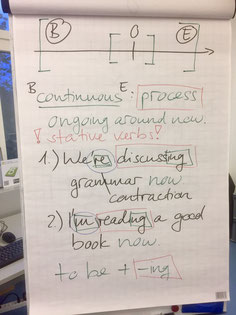 B O E
B continuous E: process
ongoing around now.
! stative verbs!
1.) We're discussing
grammar now.
contraction
2.) I'm reading a good
book now.
to be + -ing